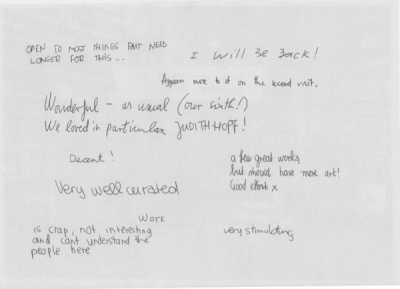 OPEN TO MOST THINGS BUT NEED
LONGER FOR THIS...
I will be back!
Appears more to it on the second visit.
Wonderful - as usual (our sixth!)
We loved in particular JUDITH HOPF!
Decent!
a few great works
but should have more art!
Good effort x
Very well curated
Work
is crap, not interesting
and cant understand the
people here
very stimulating